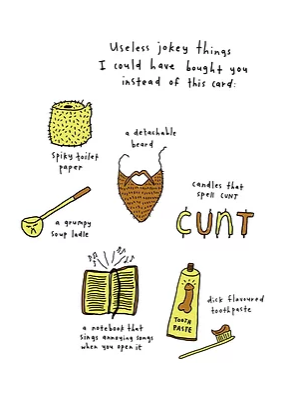 Useless jokey things
I could have bought you
instead of this card:
a detachable
beard
spiky toilet
paper
candles that
spell CUNT
CUNT
a grumpy
soup ladle
dick flavoured
toothpaste
TOOTH
PASTE
a notebook that
sings annoying songs
when you open it